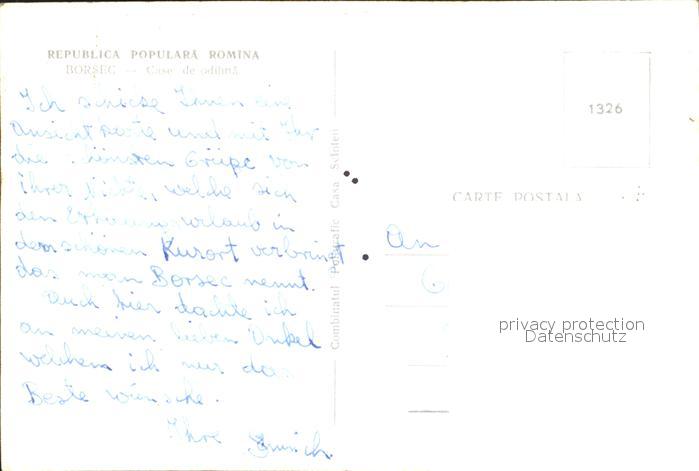 REPUBLICA POPULARĂ ROMÎNA
BORSEC — Case de odihnă
Ich schicke Ihnen eine
Ansichtkarte und mit Ihr
die schönsten Grüße von
Ihrer Nichte, welche sich
den Erholungsurlaub in
dem schönen Kurort verbringt
das man Borsec nennt.
Auch hier dachte ich
an meinen lieben Onkel
welchem ich nur das
Beste wünsche.
Ihre
Combinatul Poligrafic Casa Scînteii
1326
CARTE POSTALA
An
privacy protection
Datenschutz